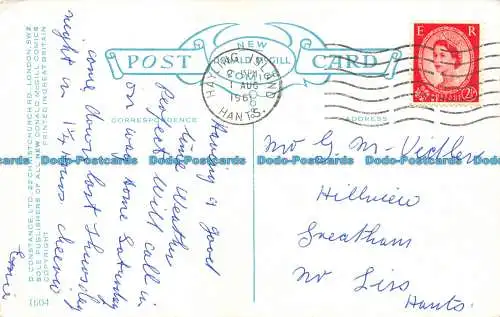 NEW
DONALD McGILL
COMICS
POST CARD
CORRESPONDENCE
ADDRESS
HAYLING ISLAND
1 AUG
196
HANTS.
E R
2½
D. CONSTANCE, LTD., 22 CHRISTCHURCH RD., LONDON, SW2
SOLE PUBLISHERS OF ALL NEW DONALD McGILL COMICS
PRINTED IN GREAT BRITAIN
1604
Having a good
time Weather
Perfect Will call in
on way home Saturday
come down last Thursday
night in 1¼ hours. Cheerio
Ernie
Mr G. M. Vidler
Hillview
Greatham
Nr Liss
Hants.
Dado-Postcards Dado-Postcards Dado-Postcards Dado-Postcards Dado-Postcards